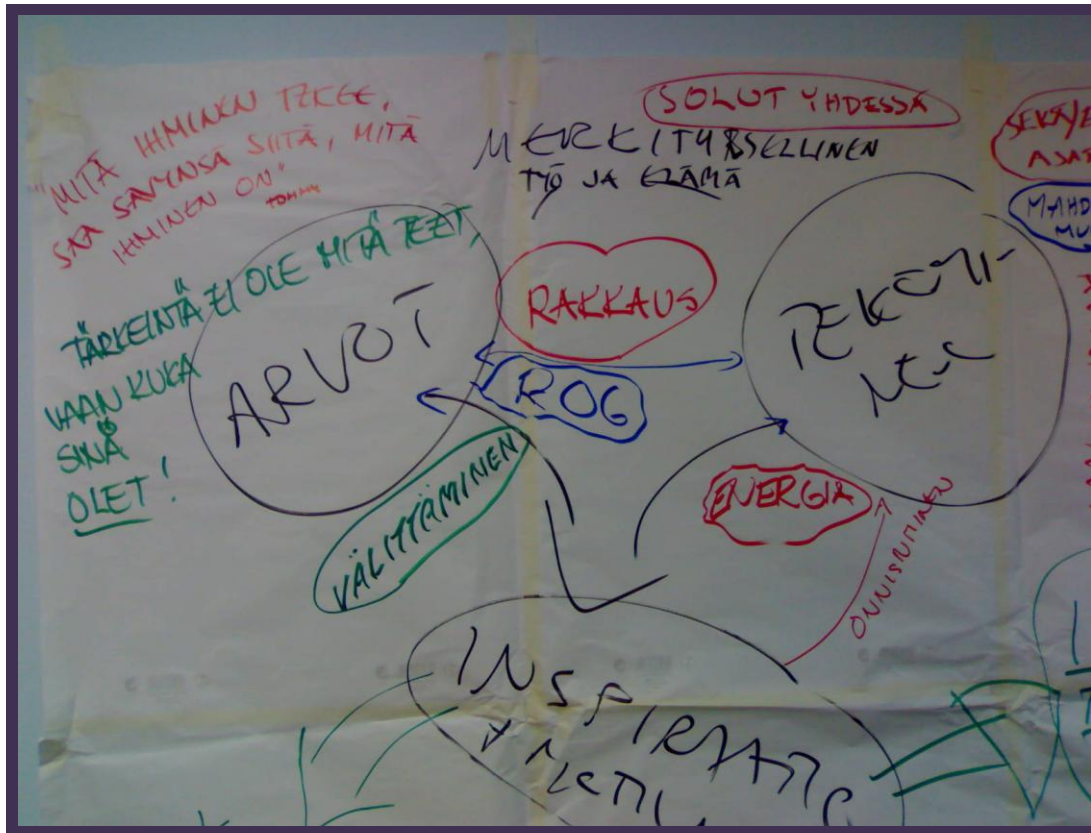 "MITÄ IHMINEN TEKEE,
SAA SAVYNSÄ SIITÄ, MITÄ
IHMINEN ON"
TOMMY
TÄRKEINTÄ EI OLE MITÄ TEET,
VAAN KUKA
SINÄ
OLET!
ARVOT
SOLUT YHDESSÄ
MERKITYKSELLINEN
TYÖ JA ELÄMÄ
RAKKAUS
ROG
VÄLITTÄMINEN
ENERGIA
ONNISTUMINEN
INSPIRAATIO
MAHD
MU